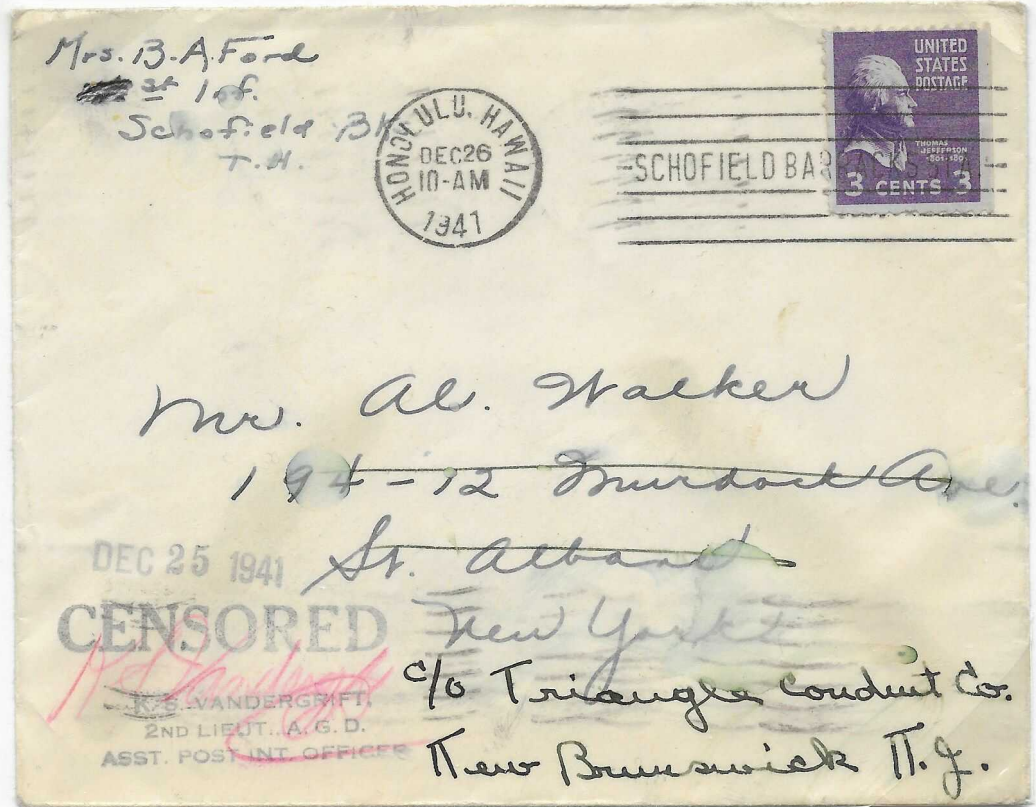 Mrs. B. A. Ford
st Inf.
Schofield Bk
T. H.
HONOLULU, HAWAII
DEC 26
10-AM
1941
SCHOFIELD BARRACKS
UNITED
STATES
POSTAGE
THOMAS
JEFFERSON
1801-1809
3 CENTS 3
Mr. Al. Walker
194-12 Murdock Ave.
St. Albans
New York
c/o Triangle Conduit Co.
New Brunswick N.J.
DEC 25 1941
CENSORED
K. S. VANDERGRIFT,
2ND LIEUT., A. G. D.
ASST. POST INT. OFFICER